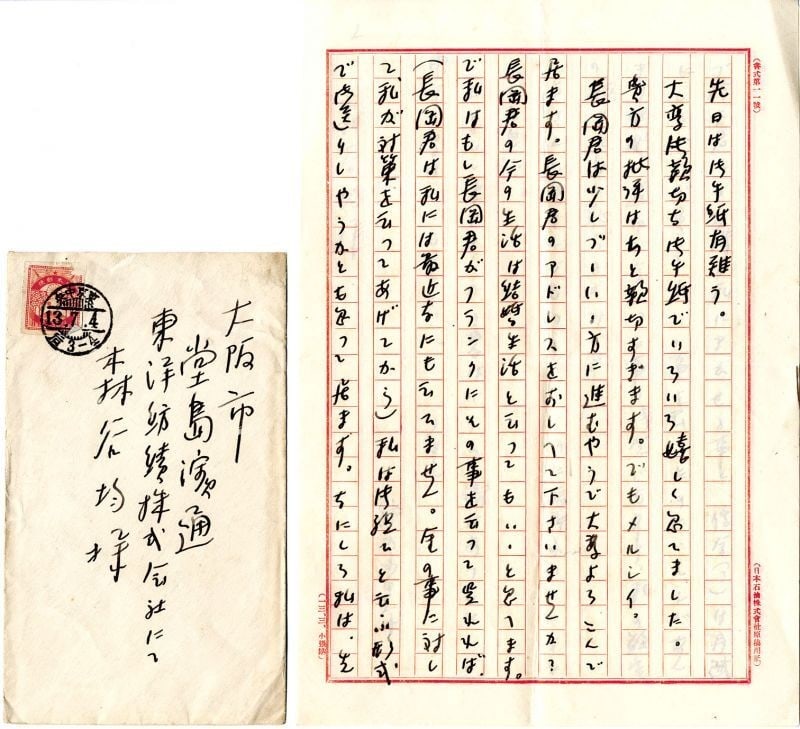 大阪市
堂島濱通
東洋紡績株式会社にて
森谷均様
13.7.4
(書式第一一號)
先日は御手紙有難う。
大変御親切な御手紙でいろいろ嬉しく思てました。
貴方の批評はちと親切すぎます。でもメルシイ。
長岡君は少しづついい方に進むやうで大変よろこんで
居ます。長岡君のアドレスをおしへて下さいませんか?
長岡君の今の生活は結婚生活と云つてもいいと思てます。
で私はもし長岡君がフランクにその事を云つて呉れれば、
(長岡君は私には最近なにも云てません。金の事に対し
て、私が対策を云つてあげてから)私は御祝ひと云ふ形式
で御送りしやうかとも思つて居ます。なにしろ私は、先
(日本石油株式會社原稿用紙)
(一三、三、小林納)